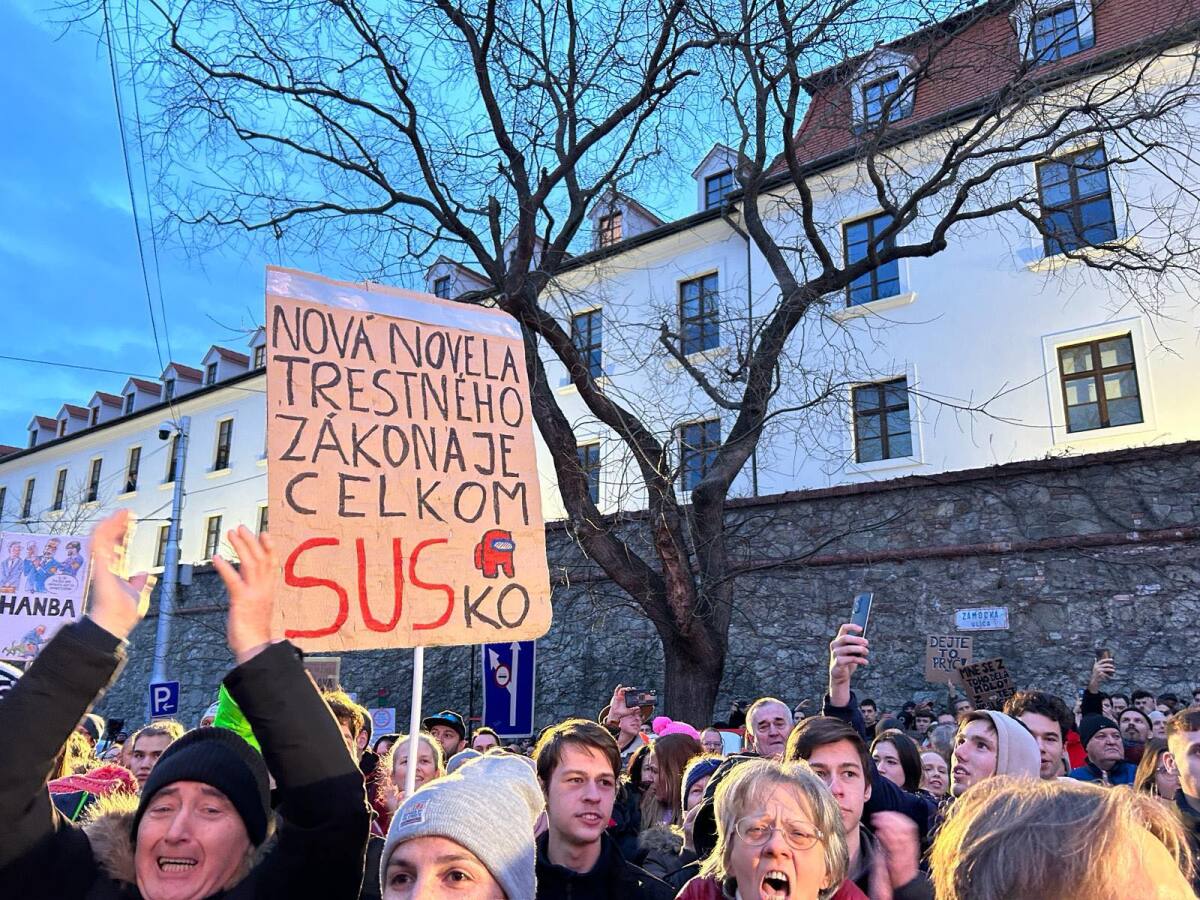 NOVÁ NOVELA
TRESTNÉHO
ZÁKONA JE
CELKOM
SUSKO
HANBA
P
ZÁMOCKÁ
ULICA
DEJTE
TO
PRYČ
MNE SEZ